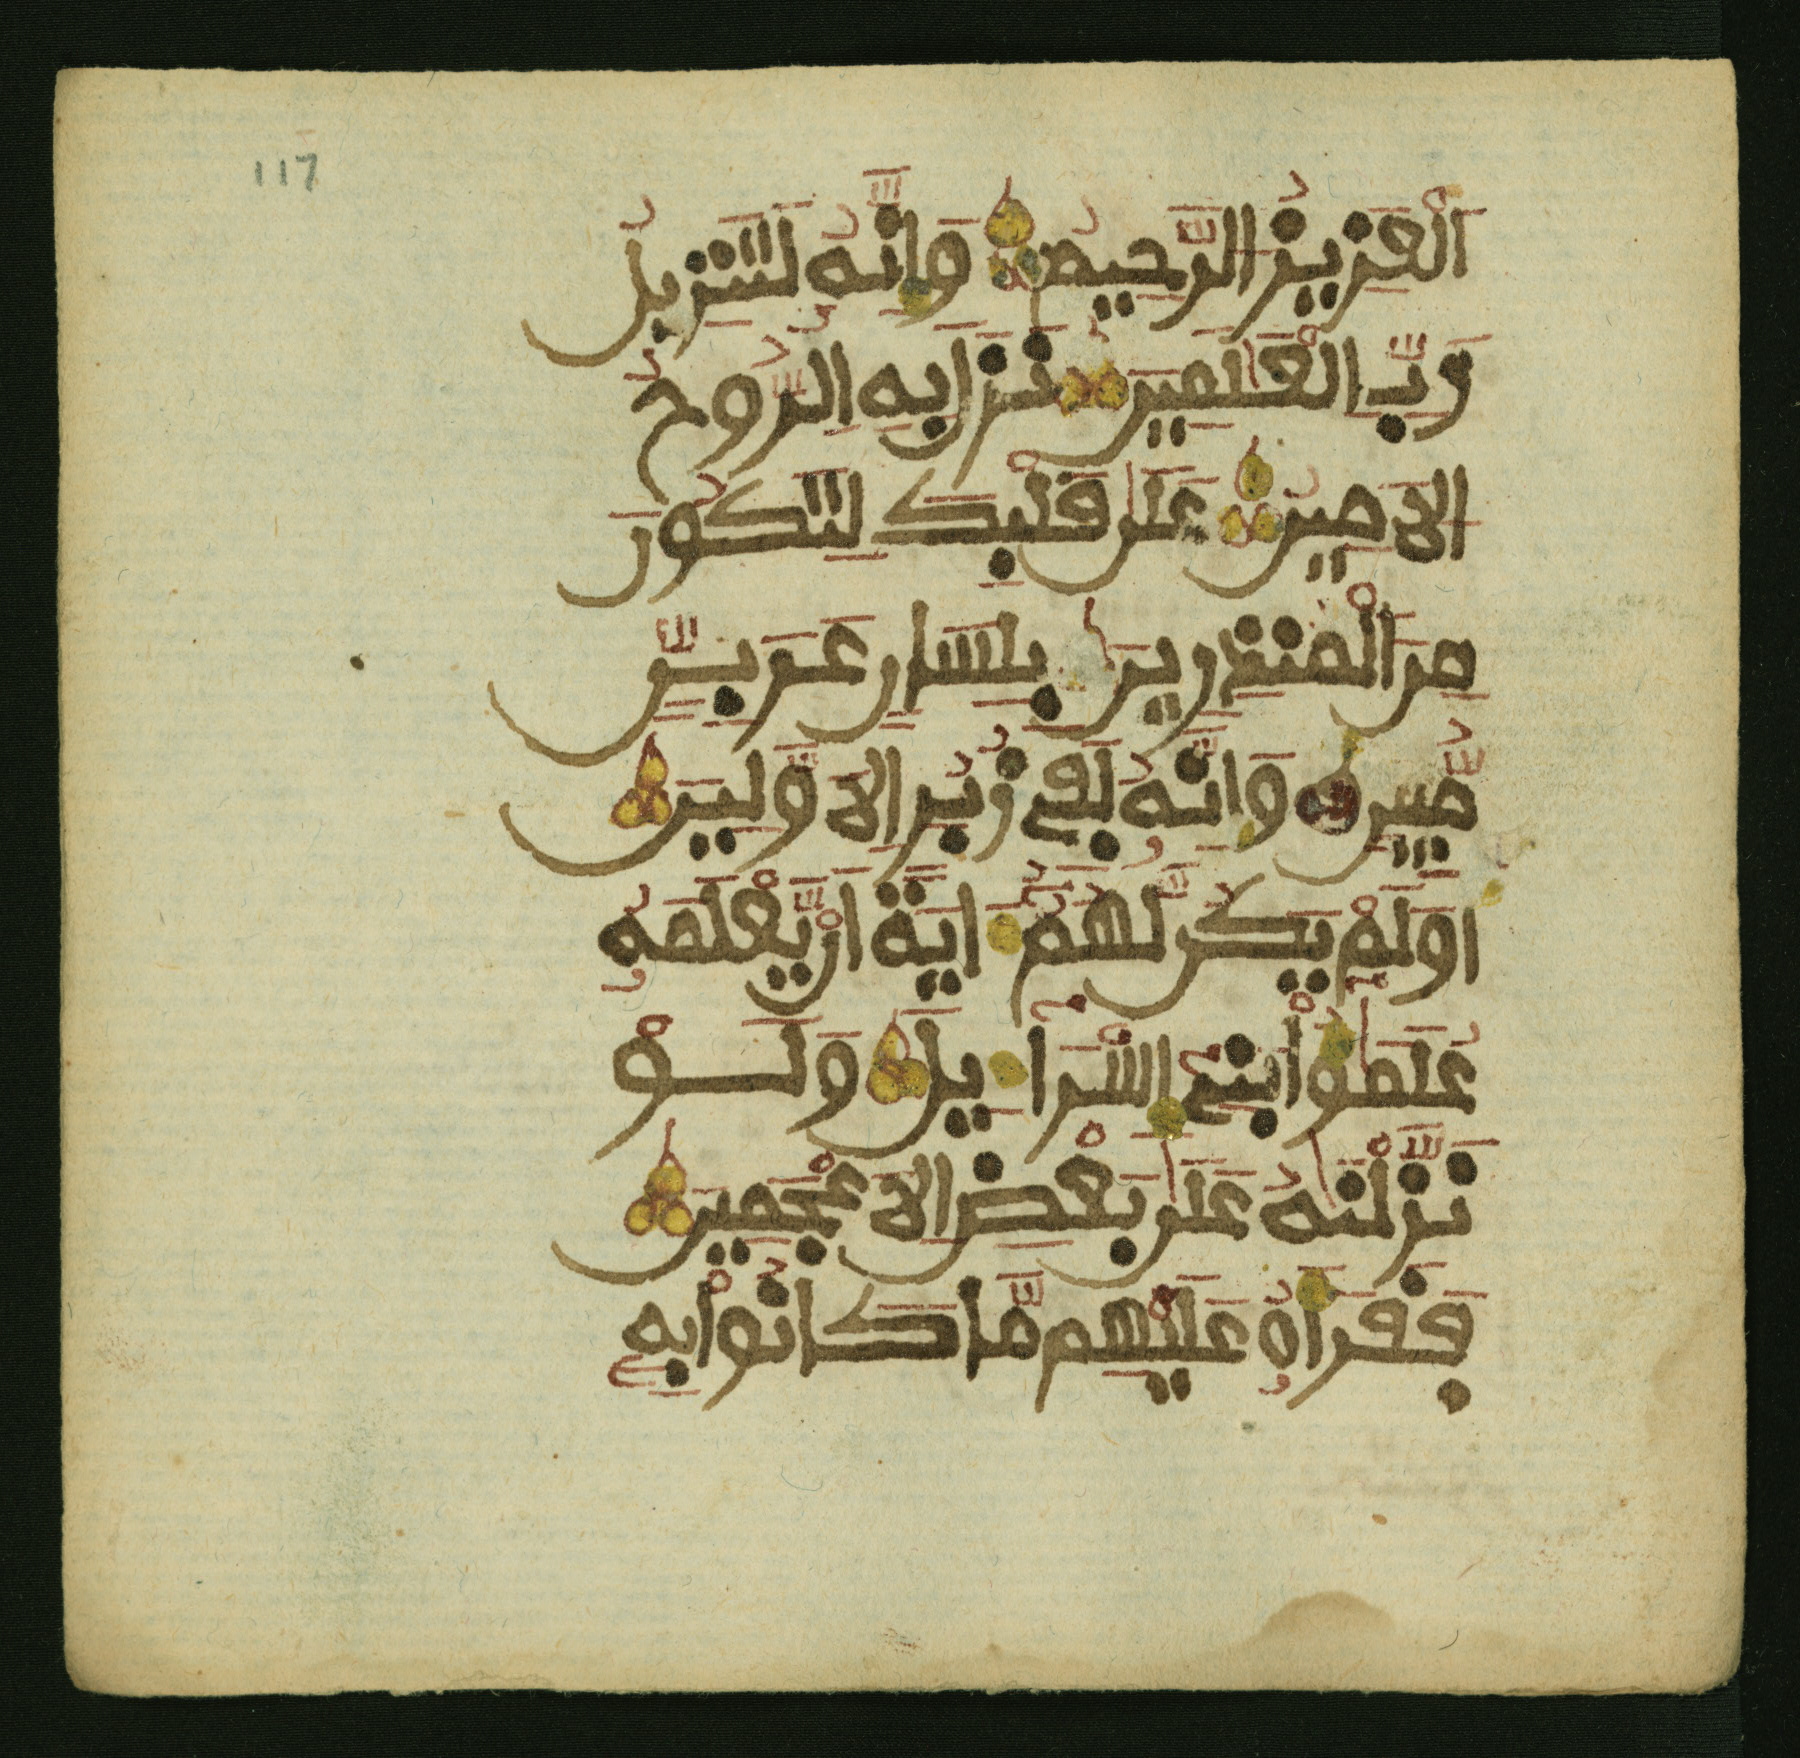 117
اَلْعَزِيزُ الرَّحِيمُ وَإِنَّهُ لَتَنزِيلُ
رَبِّ الْعَٰلَمِينَ نَزَلَ بِهِ الرُّوحُ
الَامِينُ عَلَىٰ قَلْبِكَ لِتَكُونَ
مِنَ الْمُنذِرِينَ بِلِسَانٍ عَرَبِيٍّ
مُّبِينٍ وَإِنَّهُ لَفِي زُبُرِ الَاوَّلِينَ
اَوَلَمْ يَكُن لَّهُمُ ءَايَةً اَنْ يَّعْلَمَهُ
عُلَمَٰؤُاْ بَنِي إِسْرَآءِيلَ وَلَوْ
نَزَّلْنَٰهُ عَلَىٰ بَعْضِ الَاعْجَمِينَ
فَقَرَأَهُ عَلَيْهِم مَّا كَانُواْ بِهِ